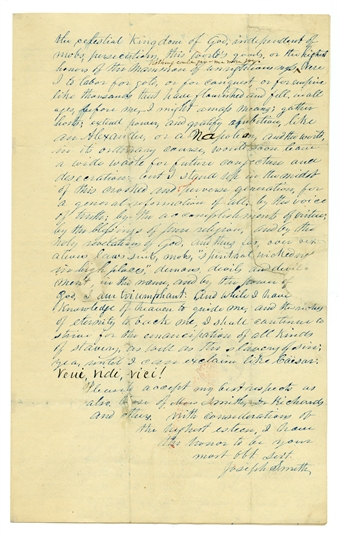 the celestial kingdom of God, independent of
mobs, persecution, this world's goods, or the highest
honors of this
I to labor for, or for conquest or for empire
like thousands that have flourished and fell, in all
ages, before me, I might amass means; gather
hosts; extend power, and gratify ambition, like
an Alexander, or a Napoleon, and the world,
in its ordinary course, would soon leave
a wide waste for future conjecture and
desecration; but I stand up in the midst
of this crooked and perverse generation, for
a general reformation of all, by the voice
of truth; by the accomplishment of virtue;
by the blessings of pure religion, and by the
holy revelation of God, and thus, over
laws suit, mobs, "spiritual wickedness
in high places," demons, devils and
in the name, and by the power of
God, I am triumphant. And while I have
knowledge of heaven to guide me, and the riches
of eternity to back me, I shall continue to
strive for the emancipation of all kinds
of slavery, as well as the slavery of sin;
yea, until I can exclaim like Caesar:
Veni, Vidi, Vici!
Please accept my best respects as
also those of Mrs Smith, Dr Richards
and others. With considerations of
the highest esteem, I have
the honor to be your
most obt. Servt.
Joseph Smith